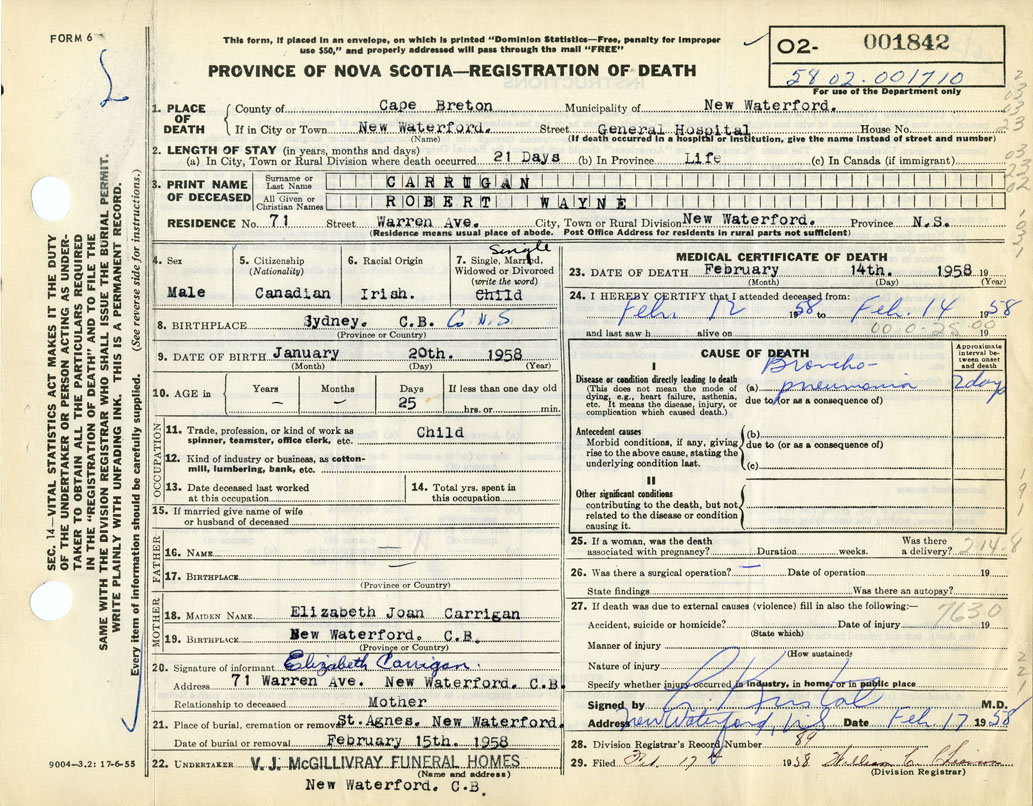 FORM 6
This form, if placed in an envelope, on which is printed "Dominion Statistics—Free, penalty for improper
use $50," and properly addressed will pass through the mail "FREE"
PROVINCE OF NOVA SCOTIA—REGISTRATION OF DEATH
02- 001842
58 02.001710
For use of the Department only
SEC. 14—VITAL STATISTICS ACT MAKES IT THE DUTY
OF THE UNDERTAKER OR PERSON ACTING AS UNDER-
TAKER TO OBTAIN ALL THE PARTICULARS REQUIRED
IN THE "REGISTRATION OF DEATH" AND TO FILE THE
SAME WITH THE DIVISION REGISTRAR WHO SHALL ISSUE THE BURIAL PERMIT.
WRITE PLAINLY WITH UNFADING INK. THIS IS A PERMANENT RECORD.
Every item of information should be carefully supplied. (See reverse side for instructions.)
1. PLACE OF DEATH County of Cape Breton Municipality of New Waterford.
If in City or Town New Waterford. Street General Hospital House No.
(Name) (If death occurred in a hospital or institution, give the name instead of street and number)
2. LENGTH OF STAY (in years, months and days)
(a) In City, Town or Rural Division where death occurred 21 Days (b) In Province Life (c) In Canada (if immigrant)
3. PRINT NAME OF DECEASED Surname or Last Name CARRIGAN
All Given or Christian Names ROBERT WAYNE
RESIDENCE No. 71 Street Warren Ave. City, Town or Rural Division New Waterford. Province N.S.
(Residence means usual place of abode. Post Office Address for residents in rural parts not sufficient)
4. Sex
Male
5. Citizenship
(Nationality)
Canadian
6. Racial Origin
Irish.
Single
7. Single, Married,
Widowed or Divorced
(write the word)
Child
8. BIRTHPLACE Sydney. C.B. Co N.S.
(Province or Country)
9. DATE OF BIRTH January 20th. 1958
(Month) (Day) (Year)
10. AGE in Years — Months — Days 25 If less than one day old
hrs. or min.
OCCUPATION
11. Trade, profession, or kind of work as
spinner, teamster, office clerk, etc. Child
12. Kind of industry or business, as cotton-
mill, lumbering, bank, etc.
13. Date deceased last worked
at this occupation
14. Total yrs. spent in
this occupation
15. If married give name of wife
or husband of deceased
FATHER
16. NAME
17. BIRTHPLACE
(Province or Country)
MOTHER
18. MAIDEN NAME Elizabeth Joan Carrigan
19. BIRTHPLACE New Waterford. C.B.
(Province or Country)
20. Signature of informant Elizabeth Carrigan.
Address 71 Warren Ave. New Waterford. C.B.
Relationship to deceased Mother
21. Place of burial, cremation or removal St. Agnes. New Waterford.
Date of burial or removal February 15th. 1958
22. UNDERTAKER V. J. McGILLIVRAY FUNERAL HOMES
(Name and address)
New Waterford. C.B.
9004—3.2: 17-6-55
MEDICAL CERTIFICATE OF DEATH
23. DATE OF DEATH February 14th. 1958 19
(Month) (Day) (Year)
24. I HEREBY CERTIFY that I attended deceased from:
Feb. 12 1958 to Feb. 14 1958
and last saw h alive on 00-0-25-00 19
CAUSE OF DEATH
Approximate
interval be-
tween onset
and death
I
Disease or condition directly leading to death
(This does not mean the mode of
dying, e.g., heart failure, asthenia,
etc. It means the disease, injury, or
complication which caused death.)
(a) Broncho-
pneumonia 2 days
due to (or as a consequence of)
Antecedent causes
Morbid conditions, if any, giving
rise to the above cause, stating the
underlying condition last.
(b)
due to (or as a consequence of)
(c)
II
Other significant conditions
contributing to the death, but not
related to the disease or condition
causing it.
25. If a woman, was the death
associated with pregnancy? Duration weeks. Was there
a delivery? 214-8
26. Was there a surgical operation? — Date of operation 19
State findings Was there an autopsy?
27. If death was due to external causes (violence) fill in also the following:— 763.0
Accident, suicide or homicide? Date of injury 19
(State which)
Manner of injury
(How sustained)
Nature of injury
Specify whether injury occurred in industry, in home, or in public place
Signed by M.D.
Address New Waterford, N.S. Date Feb. 17 1958
28. Division Registrar's Record Number 89
29. Filed Feb. 17 1958 William C.
(Division Registrar)